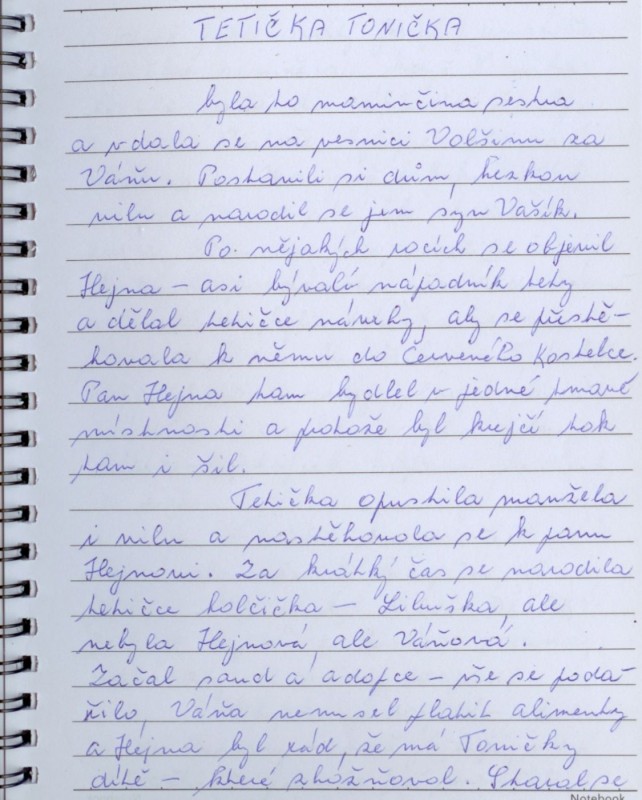 TETIČKA TONIČKA
byla to maminčina sestra
a vdala se na vesnici Volšinu za
Váňu. Postavili si dům, hezkou
vilu a narodil se jim syn Vašík.
Po nějakých rocích se objevil
Hejna – asi bývalí nápadník tety
a dělal tetičce návrhy, aby se přistě-
hovala k němu do Červeného Kostelce.
Pan Hejna tam bydlel v jedné tmavé
místnosti a protože byl krejčí tak
tam i šil.
Tetička opustila manžela
i vilu a nastěhovala se k panu
Hejnovi. Za krátký čas se narodila
tetičce holčička – Libuška, ale
nebyla Hejnová, ale Váňová.
Začal saud a adopce – vše se poda-
řilo, Váňa nemusel platit alimenty
a Hejna byl rád, že má Toničky
dítě – které zbožňoval. Staral se
Notebook